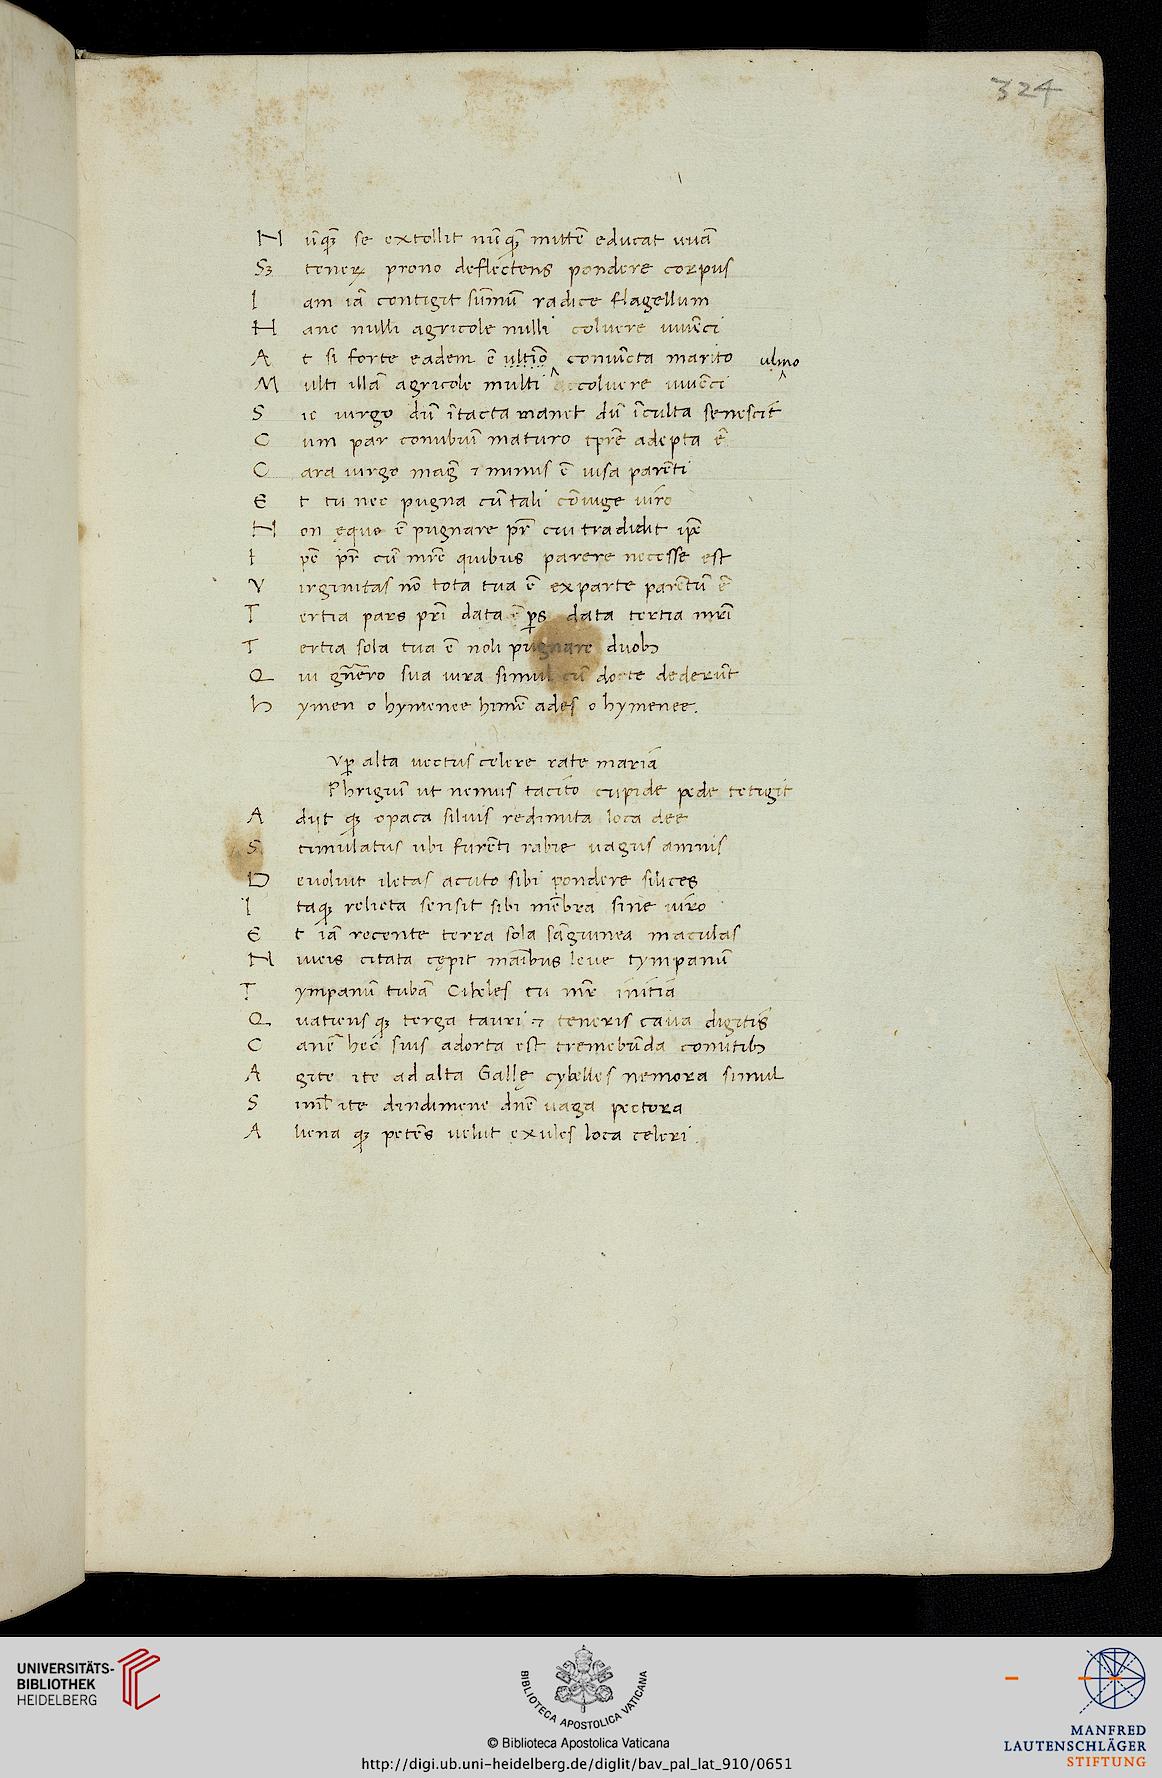 324
N ūqȝ se extollit nūqȝ mittē educat uuā
Sȝ tenerꝝ prono deflectens pondere corpus
I am iā contigit sūmū radice flagellum
H anc nulli agricole nulli coluere iuuēci
A t si forte eadem ē ultīo conuīcta marito ulmo
M ulti illā agricole multi accoluere iuuēci
S ic uirgo dū ītacta manet dū īculta senescit
C um par conubiū maturo tpre adepta ē
C ara uirgo mag ⁊ minus ē uisa parēti
E t tu nec pugna cū tali cōiuge uiro
N on ęquo ē pugnare pr̄ cui tradidit ipē
I pē pr̄ cū mrē quibus parere necesse est
V irginitas nō tota tua ē ex parte parētū ē
T ertia pars prī data ē ꝑs data tertia mrī
T ertia sola tua ē noli pugnare duobꝫ
Q ui gn̄ero sua iura simul cū dote dederūt
h ymen o hymenee himē ades o hymenee.
Vꝑ alta uectus celere rate maria
Phrigiū ut nemus tacito cupide pede tetigit
A diit qȝ opaca siluis redimita loca dee
S timulatus ubi furēti rabie uagus amnis
D euoluit iletas acuto sibi pondere silices
I taqȝ relicta sensit sibi mēbra sine uiro
E t iā recente terra sola sāguinea maculas
N iueis citata cępit māibus leue tympanū
T ympanū tubā Cibeles tu mr̄ initia
Q uatiens qȝ terga tauri ⁊ teneris caua digitis
C anē hec suis adorta est tremebūda comitibꝫ
A gite ite ad alta Gallę cybelles nemora simul
S iml̄ ite dindimene dnē uaga pectora
A liena qȝ petēs uelut exules loca celeri.
UNIVERSITÄTS-
BIBLIOTHEK
HEIDELBERG
BIBLIOTECA APOSTOLICA VATICANA
© Biblioteca Apostolica Vaticana
http://digi.ub.uni-heidelberg.de/diglit/bav_pal_lat_910/0651
MANFRED
LAUTENSCHLÄGER
STIFTUNG